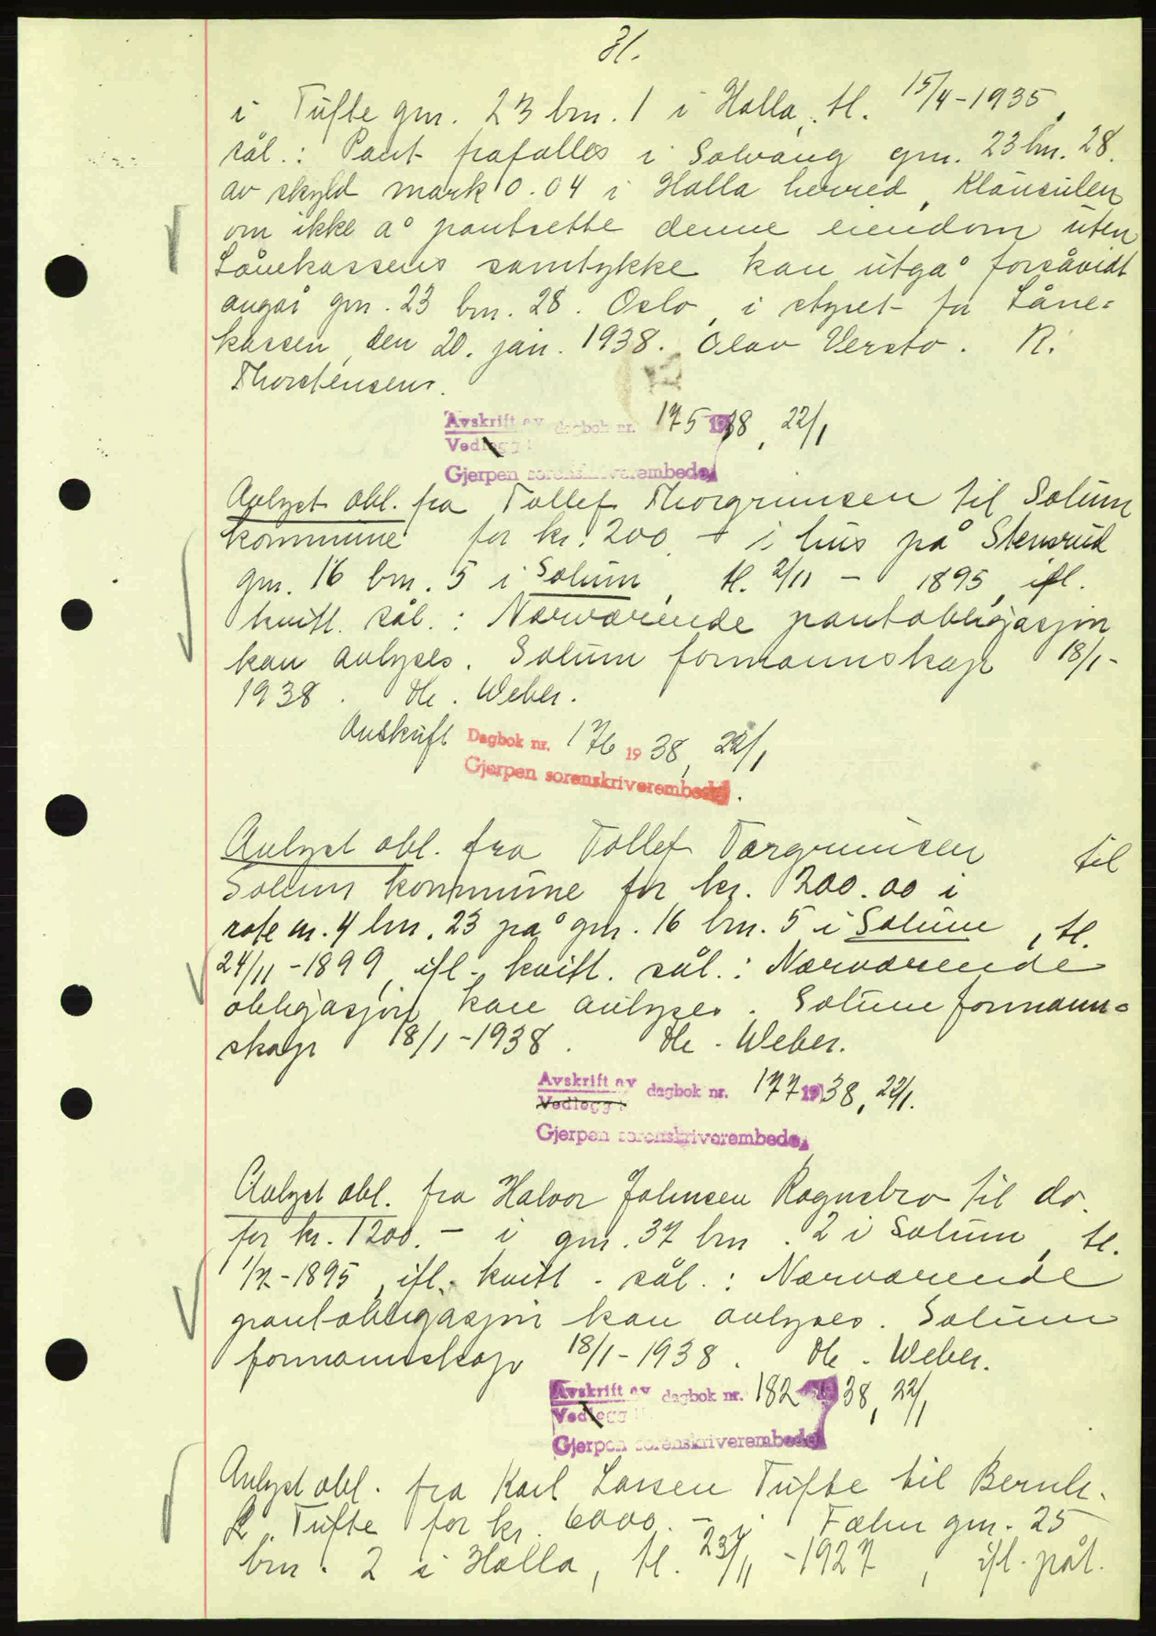 31.
i Tufte gnr. 23 bnr. 1 i Holla, tl. 15/4-1935,
sål.: Pant frafalles i Solvang gnr. 23 bnr. 28.
av skyld mark 0.04 i Holla herred, Klausulen
om ikke å pantsette denne eiendom uten
Lånekassens samtykke kan utgå forsåvidt
angår gnr. 23 bnr. 28. Oslo, i styret for Låne=
kassen, den 20. jan. 1938. Olav Versto. R.
Thorstensen.
Avskrift av dagbok nr. 175 1938, 22/1
Vedlegg
Gjerpen sorenskriverembede
Avlyst obl. fra Tollef Thorgrimsen til Solum
kommune for kr. 200.- i hus på Stensrud
gnr. 16 bnr. 5 i Solum, tl. 2/11 - 1895, ifl.
kvitt. sål.: Nærværende pantobligasjon
kan avlyses. Solum formannskap 18/1-
1938. Weber.
Avskrift Dagbok nr. 176 1938, 22/1
Gjerpen sorenskriverembede.
Avlyst obl. fra Tollef Torgrimsen til
Solum kommune for kr. 200.00 i
rote nr. 4 bnr. 23 på gnr. 16 bnr. 5 i Solum, tl.
24/11-1899, ifl. kvitt. sål.: Nærværende
obligasjon kan avlyses. Solum formann=
skap 18/1-1938. Weber.
Avskrift av dagbok nr. 177 1938, 22/1.
Vedlegg:
Gjerpen sorenskriverembede
Avlyst obl. fra Halvor Johnsen Rognsbro til do.
for kr. 1200.- i gnr. 37 bnr. 2 i Solum, tl.
1/7-1895, ifl. kvitt. sål.: Nærværende
pantobligasjon kan avlyses. Solum
formannskap 18/1-1938. Weber.
Avskrift av dagbok nr. 182 1938, 22/1
Vedlegg
Gjerpen sorenskriverembede
Avlyst obl. fra Karl Larsen Tufte til Bernh.
L. Tufte for kr. 6000.- i Fæhn gnr. 25
bnr. 2 i Holla, tl. 23/11-1927, ifl. påt.